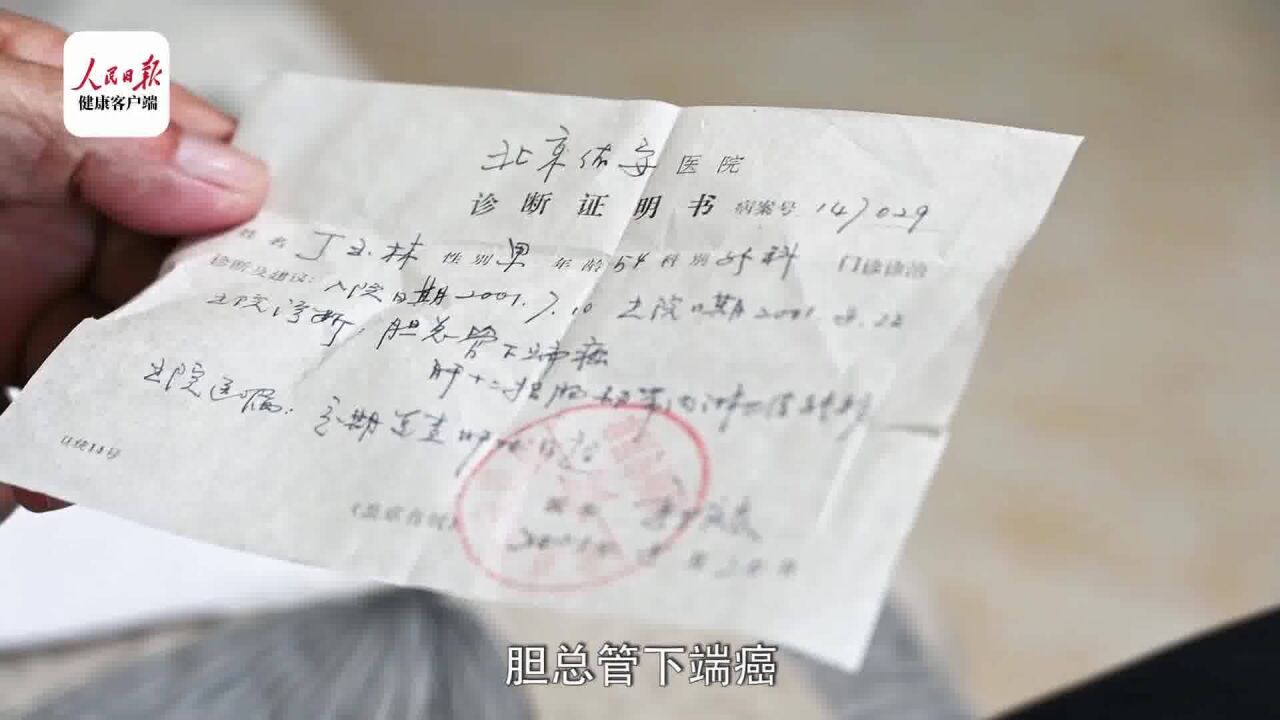 人民日报
健康客户端
北京佑安医院
诊断证明书 病案号 147029
姓名 丁玉林 性别 男 年龄 54 科别 外科 门诊诊治
诊断及建议：入院日期2001.7.10 出院日期2001.8.22
出院诊断：胆总管下端癌
肝十二指肠韧带内淋巴结转移
出院医嘱：定期复查
胆总管下端癌